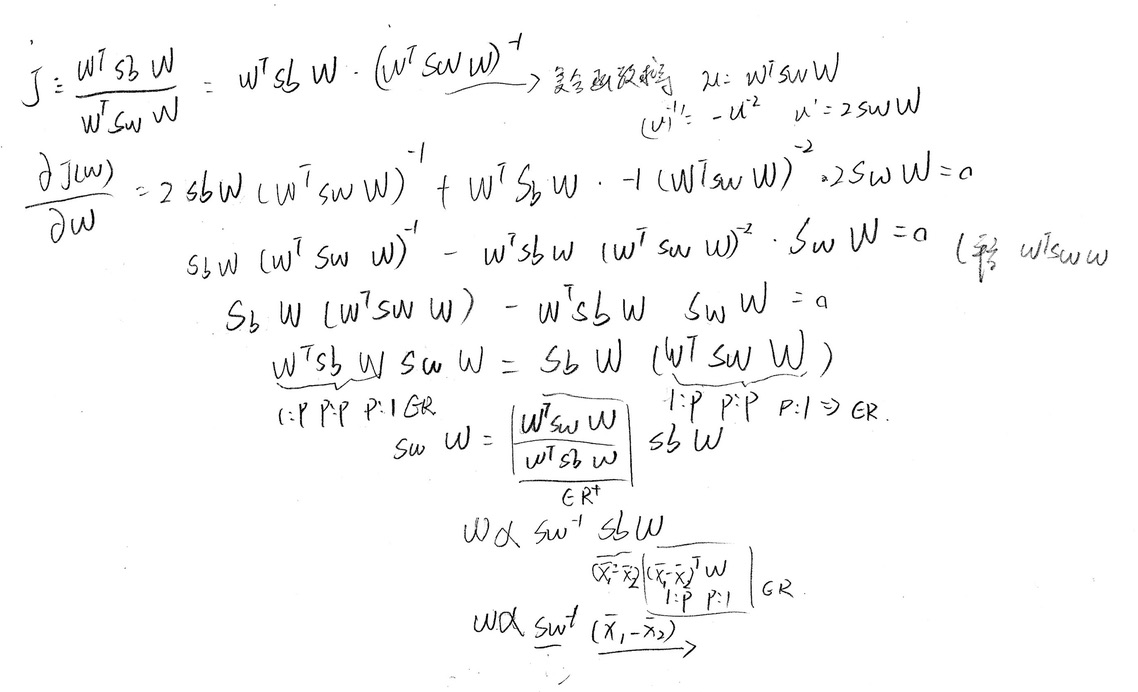 J = W^T Sb W / W^T Sw W = W^T Sb W · (W^T Sw W)^-1 → 复合函数求导 u = W^T Sw W
(u)^-1' = -u^-2 u' = 2 Sw W
∂J(W) / ∂W = 2 Sb W (W^T Sw W)^-1 + W^T Sb W · -1 (W^T Sw W)^-2 · 2 Sw W = 0
Sb W (W^T Sw W)^-1 - W^T Sb W (W^T Sw W)^-2 · Sw W = 0 ( W^T Sw W
Sb W (W^T Sw W) - W^T Sb W Sw W = 0
W^T Sb W Sw W = Sb W (W^T Sw W)
1:P P:P P:1 ∈R 1:P P:P P:1 ⇒ ∈R.
Sw W = W^T Sw W / W^T Sb W Sb W
∈R^+
W ∝ Sw^-1 Sb W
(x̄1-x̄2) (x̄1-x̄2)^T W
1:P P:1 ∈R.
W ∝ Sw^-1 (x̄1-x̄2)